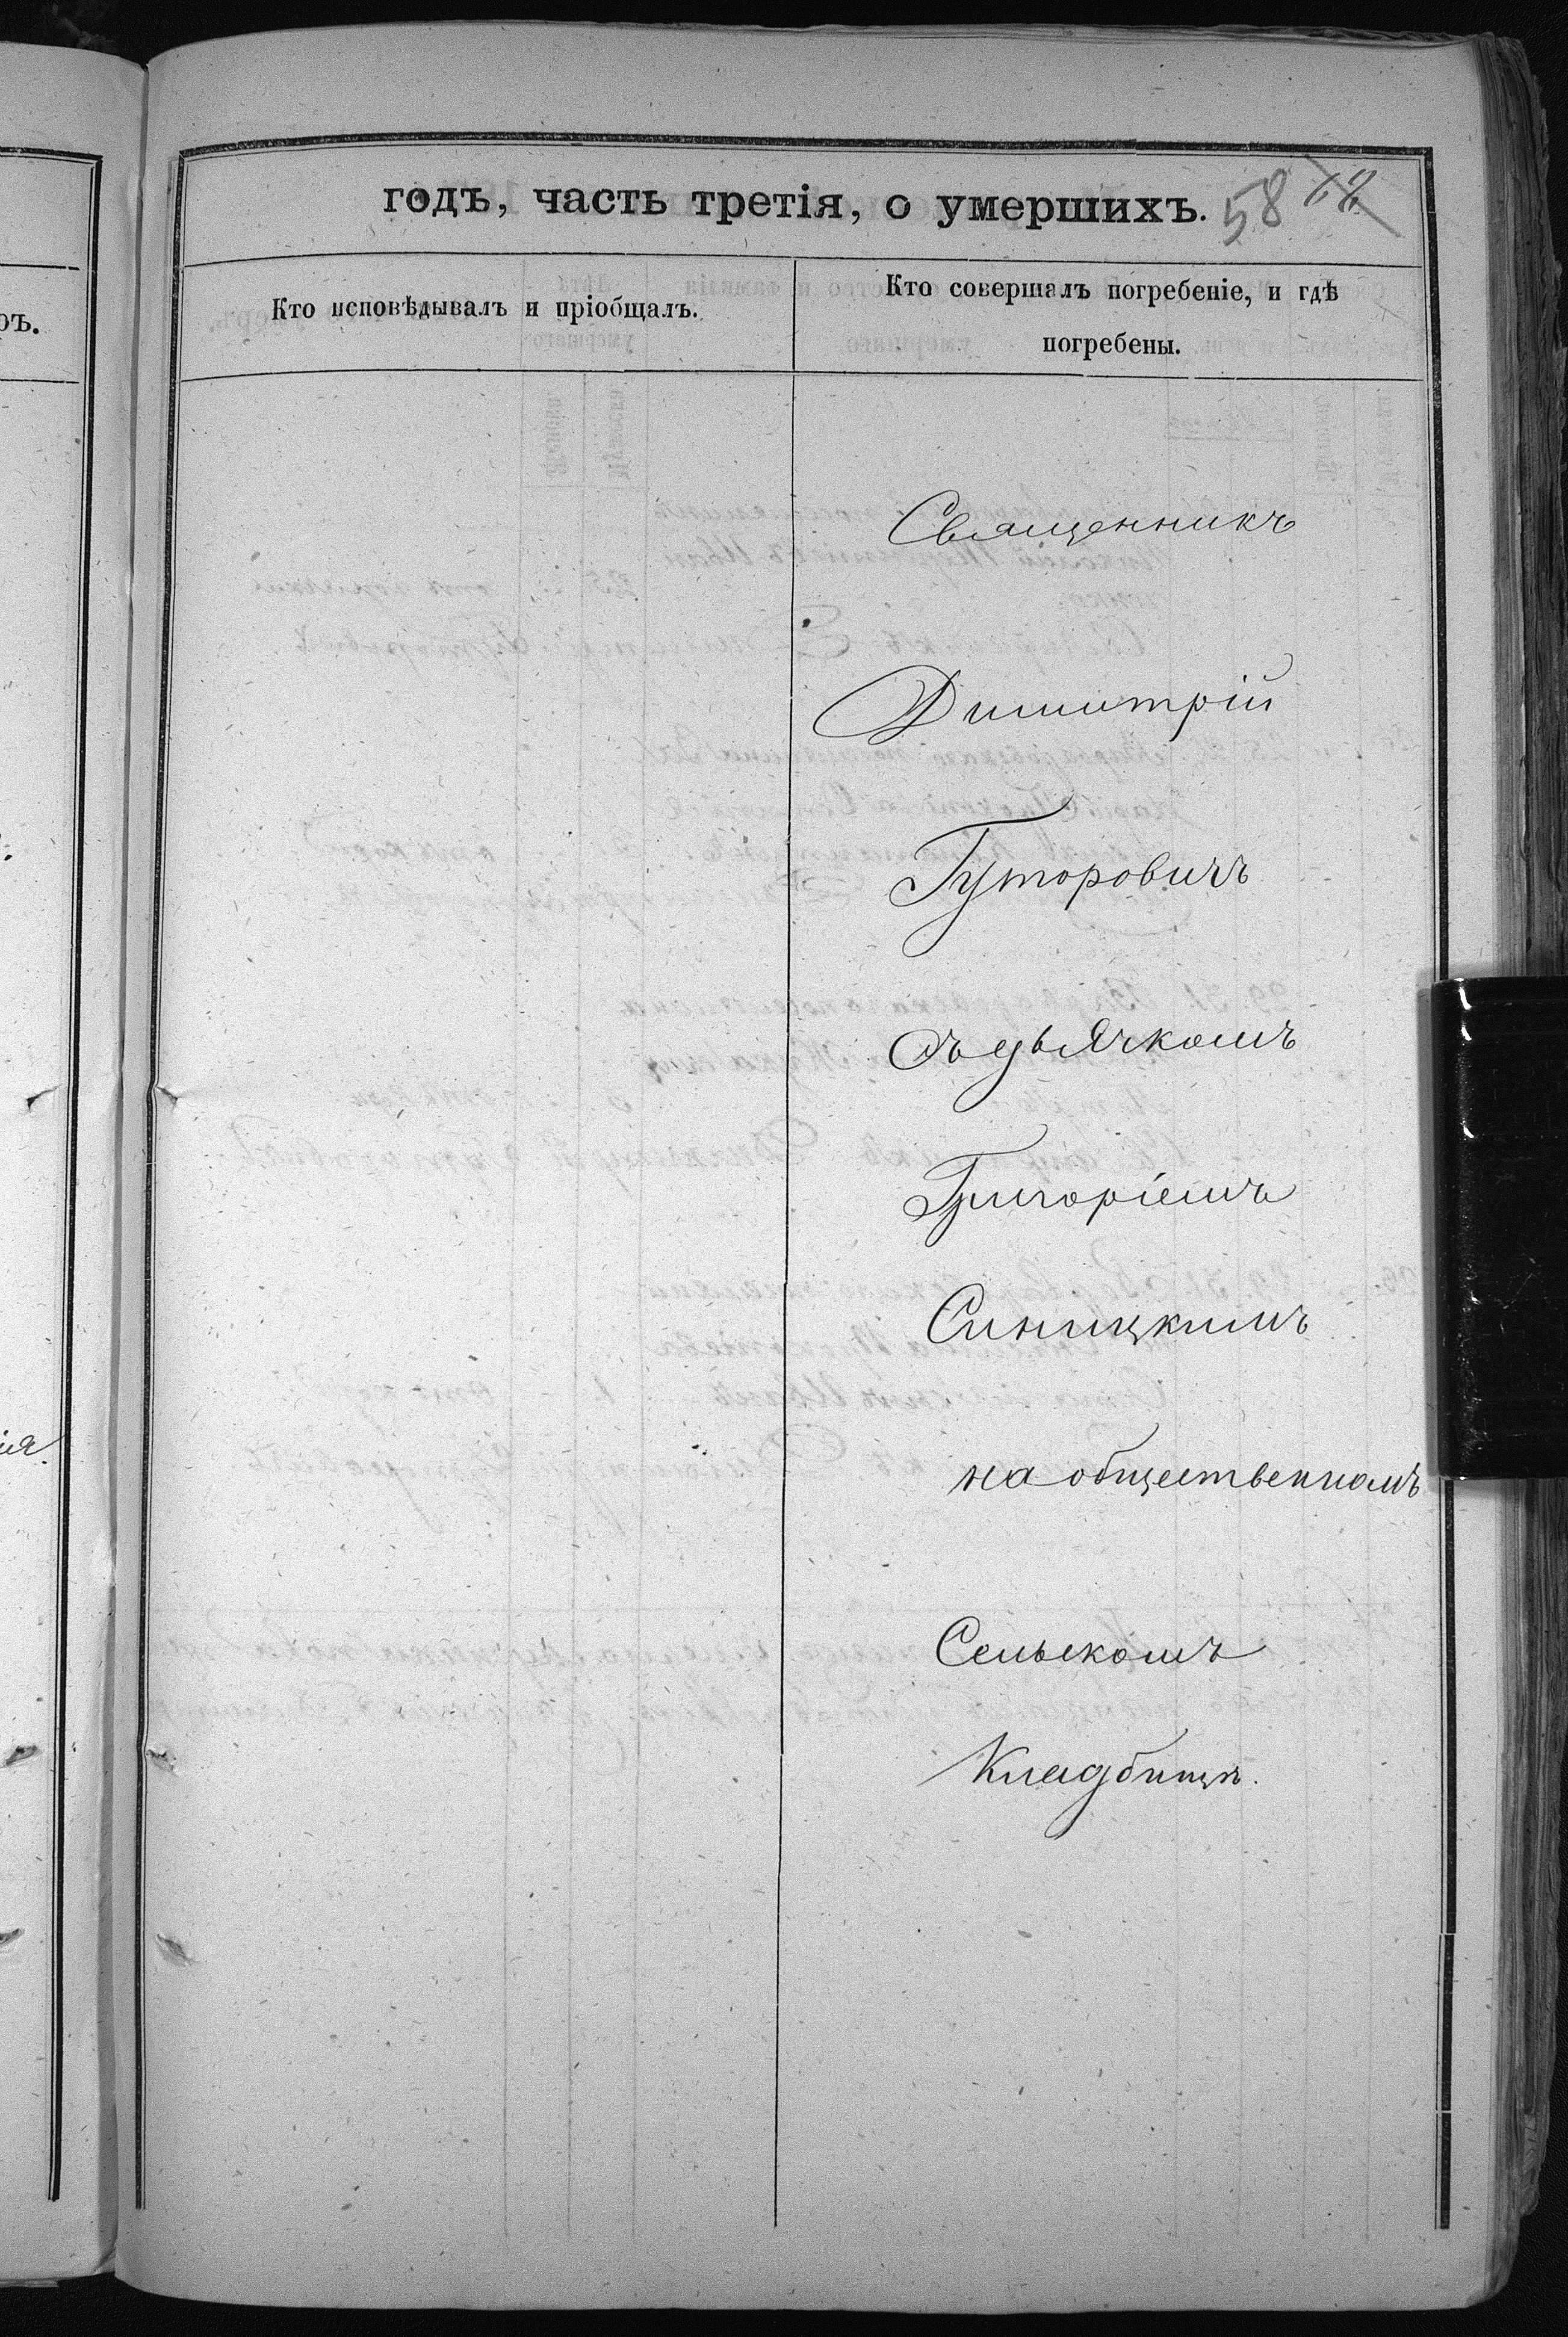 годъ, часть третія, о умершихъ. 58
Кто исповѣдывалъ и пріобщалъ.
Кто совершалъ погребеніе, и гдѣ
погребены.
Священникъ
Димитрій
Гуторовичъ
съ дьячкомъ
Григоріемъ
Синицкимъ
на общественномъ
Сельскомъ
Кладбищѣ.